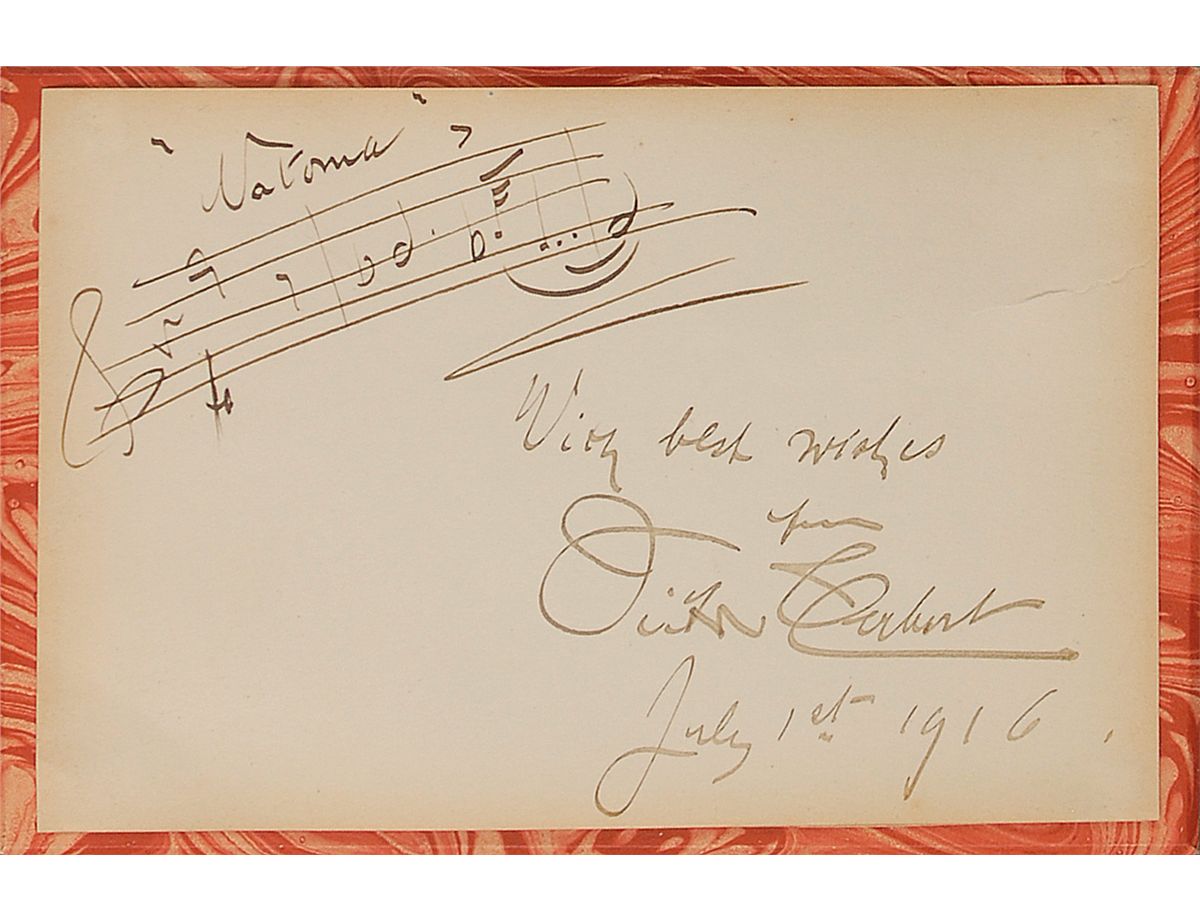 "Natoma"
With best wishes
from
Victor Herbert
July 1st 1916.